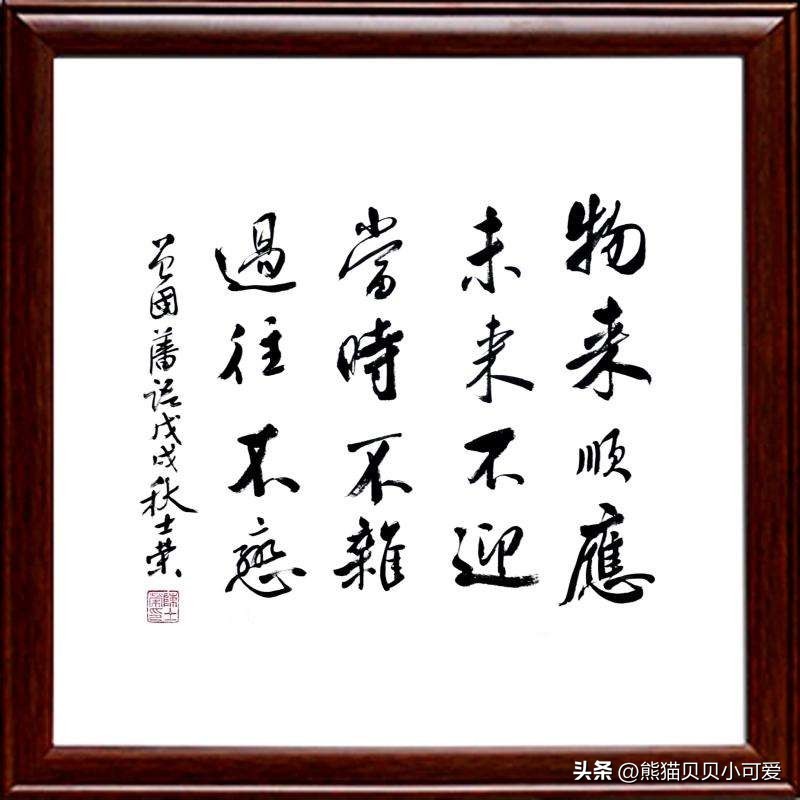 物来順應
未来不迎
當時不雜
過往不戀
曾國藩語戊戌秋士榮
头条 @熊猫贝贝小可爱